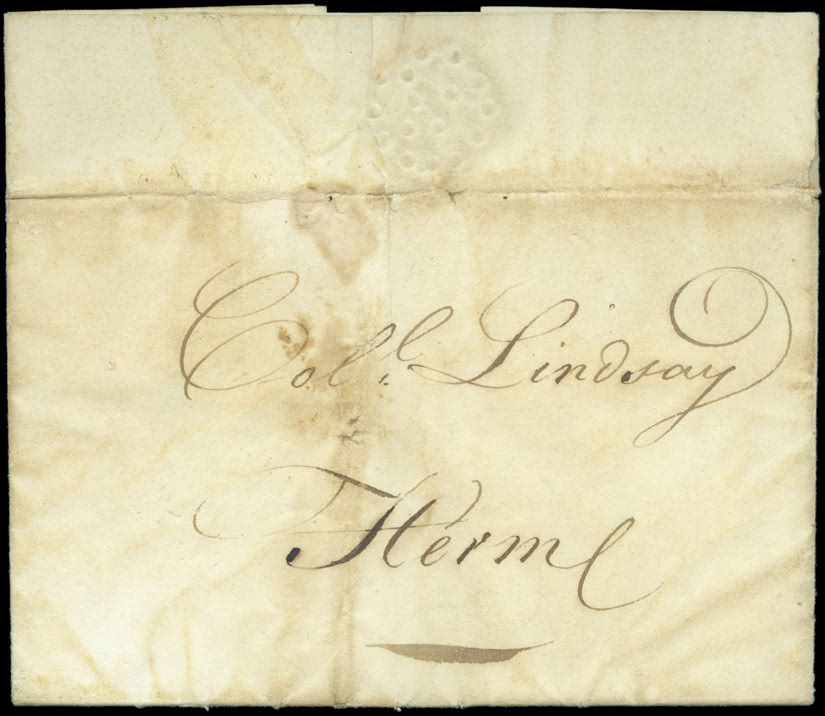 Coll. Lindsay
Herm